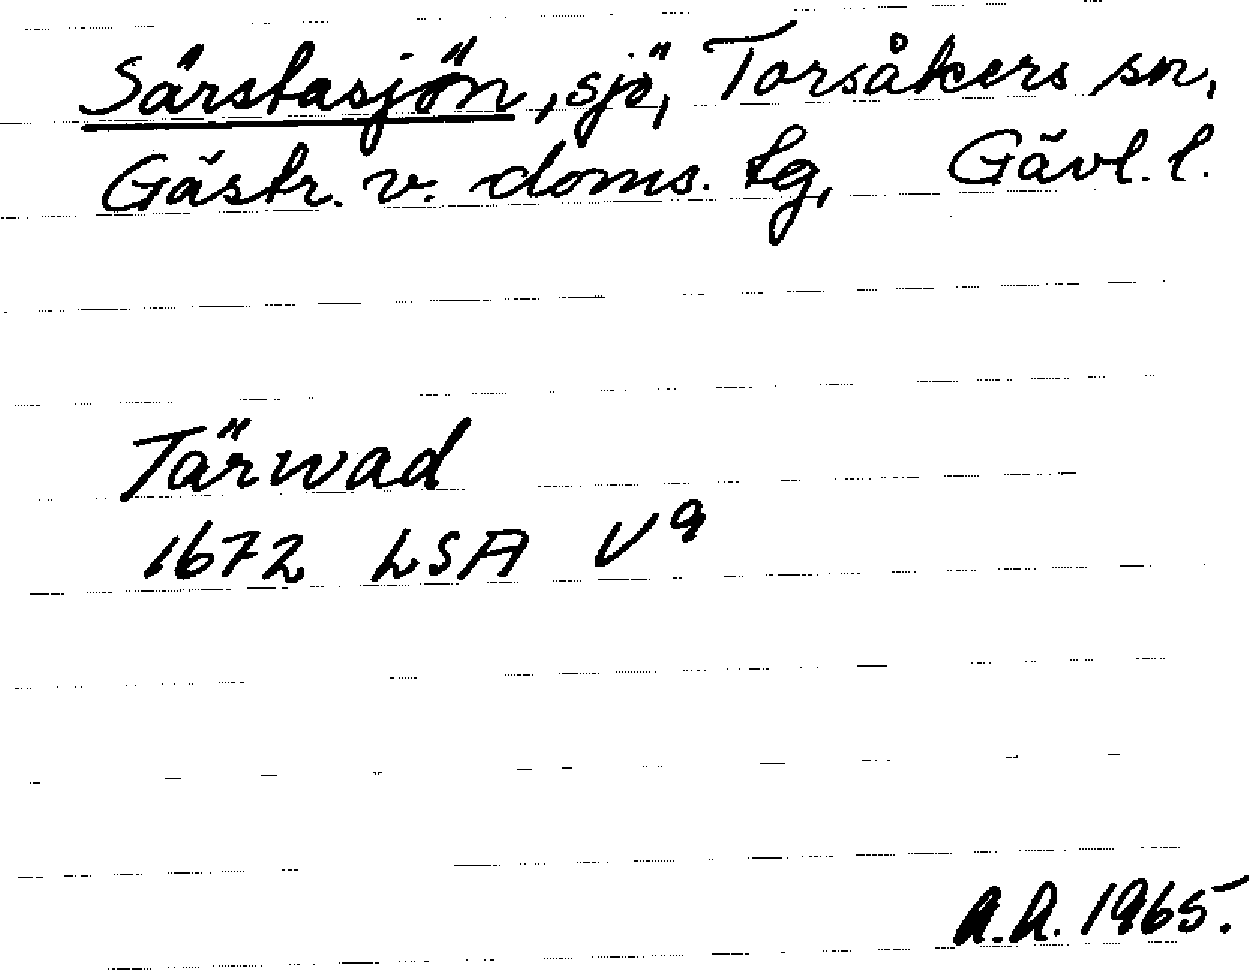 Särstasjön, sjö, Torsåkers sn,
Gästr. v. doms. tg, Gävl. l.
Tärwad
1672 LSA V 9
A.A. 1965.